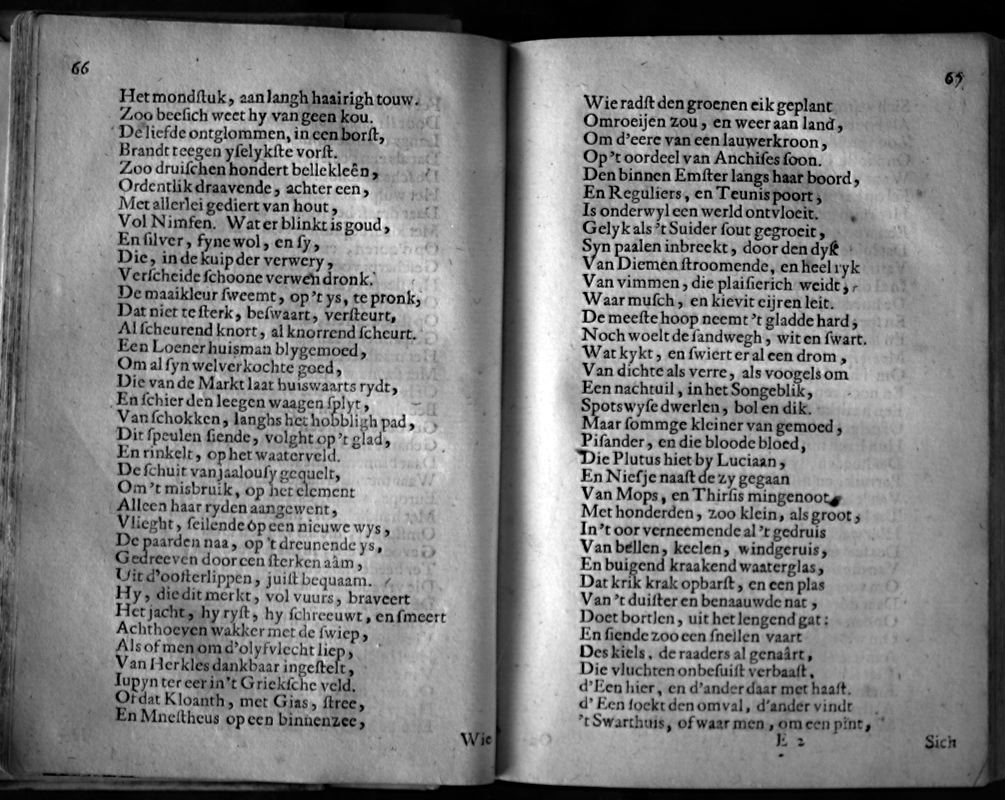 66
Het mondſtuk, aan langh haairigh touw.
Zoo beeſich weet hy van geen kou.
De liefde ontglommen, in een borſt,
Brandt teegen yſelykſte vorſt.
Zoo druiſchen hondert bellekleên,
Ordentlik draavende, achter een,
Met allerlei gediert van hout,
Vol Nimfen. Wat er blinkt is goud,
En ſilver, fyne wol, en ſy,
Die, in de kuip der verwery,
Verſcheide ſchoone verwen dronk.
De maaikleur ſweemt, op 't ys, te pronk,
Dat niet te ſterk, beſwaart, verſteurt,
Al ſcheurend knort, al knorrend ſcheurt.
Een Loener huisman blygemoed,
Om al ſyn welverkochte goed,
Die van de Markt laat huiswaarts rydt,
En ſchier den leegen waagen ſplyt,
Van ſchokken, langhs het hobbligh pad,
Dit ſpeulen ſiende, volght op 't glad,
En rinkelt, op het waaterveld.
De ſchuit van jaalouſy gequelt,
Om 't misbruik, op het element
Alleen haar ryden aangewent,
Vlieght, ſeilende op een nieuwe wys,
De paarden naa, op 't dreunende ys,
Gedreeven door een ſterken aâm,
Uit d'ooſterlippen, juiſt bequaam.
Hy, die dit merkt, vol vuurs, braveert
Het jacht, hy ryſt, hy ſchreeuwt, en ſmeert
Achthoeven wakker met de ſwiep,
Als of men om d'olyfvlecht liep,
Van Herkles dankbaar ingeſtelt,
Iupyn ter eer in 't Griekſche veld.
Of dat Kloanth, met Gias, ſtree,
En Mneſtheus op een binnenzee,
Wie
65
Wie radſt den groenen eik geplant
Omroeijen zou, en weer aan land,
Om d'eere van een lauwerkroon,
Op 't oordeel van Anchiſes ſoon.
Den binnen Emſter langs haar boord,
En Reguliers, en Teunis poort,
Is onderwyl een werld ontvloeit.
Gelyk als 't Suider ſout gegroeit,
Syn paalen inbreekt, door den dyk
Van Diemen ſtroomende, en heel ryk
Van vimmen, die plaiſierich weidt,
Waar muſch, en kievit eijren leit.
De meeſte hoop neemt 't gladde hard,
Noch woelt de ſandwegh, wit en ſwart.
Wat kykt, en ſwiert er al een drom,
Van dichte als verre, als voogels om
Een nachtuil, in het Songeblik,
Spotswyſe dwerlen, bol en dik.
Maar ſommge kleiner van gemoed,
Piſander, en die bloode bloed,
Die Plutus hiet by Luciaan,
En Nieſje naaſt de zy gegaan
Van Mops, en Thirſis mingenoot,
Met honderden, zoo klein, als groot,
In 't oor verneemende al 't gedruis
Van bellen, keelen, windgeruis,
En buigend kraakend waaterglas,
Dat krik krak opbarſt, en een plas
Van 't duiſter en benaauwde nat,
Doet bortlen, uit het lengend gat:
En ſiende zoo een ſnellen vaart
Des kiels, de raaders al genaârt,
Die vluchten onbeſuiſt verbaaſt,
d'Een hier, en d'ander daar met haaſt.
d'Een ſoekt den omval, d'ander vindt
't Swarthuis, of waar men, om een pint,
E 2
Sich